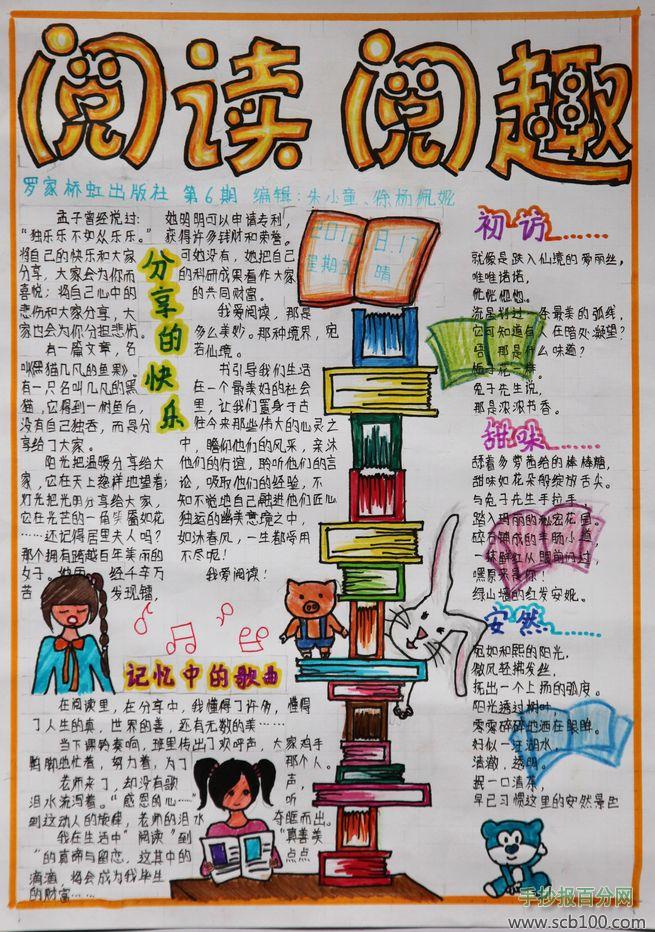 阅读 阅趣
罗家桥虹出版社 第6期 编辑:朱小童、徐杨佩妮
分享的快乐
孟子曾经说过:
“独乐乐不如众乐乐。”
将自己的快乐和大家
分享,大家会为你而
喜悦;将自己心中的
悲伤和大家分享,大
家也会为你分担悲伤。
有一篇文章,名
叫《黑猫几凡的鱼果》。
有一只名叫几凡的黑
猫,它得到一树鱼后,
没有自己独吞,而是分
享给了大家。
阳光把温暖分享给大
家,它在天上慈祥地望着
灯光把光明分享给大家,
它在光芒的一角笑靥如花
……还记得居里夫人吗?
那个拥有跨越百年美丽的
女子。她用 经千辛万
苦 发现镭,
她明明可以申请专利,
获得许多钱财和荣誉。
可她没有,她把自己
的科研成果看作大家
的共同财富。
我爱阅读,那是
多么美妙。那种境界,宛
若仙境。
书引导我们生活
在一个最美好的社会
里,让我们置身于古
往今来那些伟大的心灵之
中,瞻仰他们的风采,亲沐
他们的行谊,聆听他们的言
论,吸取他们的经验,不
知不觉地自己融进他们匠心
独运的幽美意境之中,
如沐春风,一生都受用
不尽呢!
我爱阅读!
星期五 晴
初访……
就像是跌入仙境的爱丽丝,
唯唯诺诺,
恍恍惚惚。
流星划过一条最美的弧线,
它可知道有人在暗处凝望?
唔,那是什么味道?
栀子花一样。
兔子先生说,
那是浓浓书香。
甜味……
舔着多萝西给的棒棒糖,
甜味如花朵般绽放舌尖。
与兔子先生手拉手,
踏入玛丽的秘密花园。
碎石铺成的羊肠小道
一抹鲜红从眼前闪过,
嘿原来是你!
绿山墙的红发安妮。
安然……
宛如和熙的阳光,
微风轻拂发丝,
抚出一个上扬的弧度。
阳光透过树叶,
零零碎碎地洒在眼眸。
好似一汪湖水,
清澈,透明。
抿一口清茶,
早已习惯这里的安然
记忆中的歌曲
在阅读里,在分享中,我懂得了许多,懂得
了人生的真,世界的善,还有无数的美……
当下课铃奏响,班里传出了欢呼声,大家鸡手
鸭脚地忙着,努力着,为了 那个人。
老师来了,却没有歌 声,
泪水流泻着。“感恩的心……” 听
到这动人的旋律,老师的泪水 夺眶而出。
我在生活中“阅读”到 “真善美
”的真谛与留恋,这其中的 点点
滴滴,将会成为我毕生
的财富……
手抄报百分网
www.scb100.com